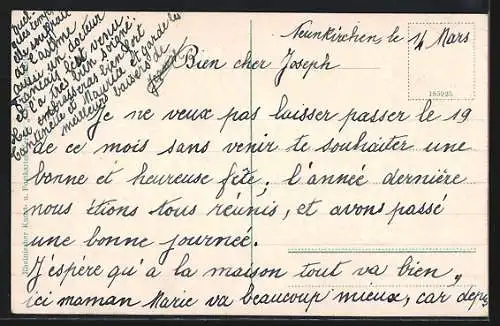 Neunkirchen, le 14 Mars
Bien cher Joseph
185925
Je ne veux pas laisser passer le 19
de ce mois sans venir te souhaiter une
bonne et heureuse fête, l'année dernière
nous étions tous réunis, et avons passé
une bonne journée.
J'espère qu'à la maison tout va bien,
ici maman Marie va beaucoup mieux, car depuis
quel-
que temps
de
et l'asthme
un docteur
Français est venu
et l'a très bien soigné.
embrasseras bien fort
et Maurice et garde les
meilleurs baisers de